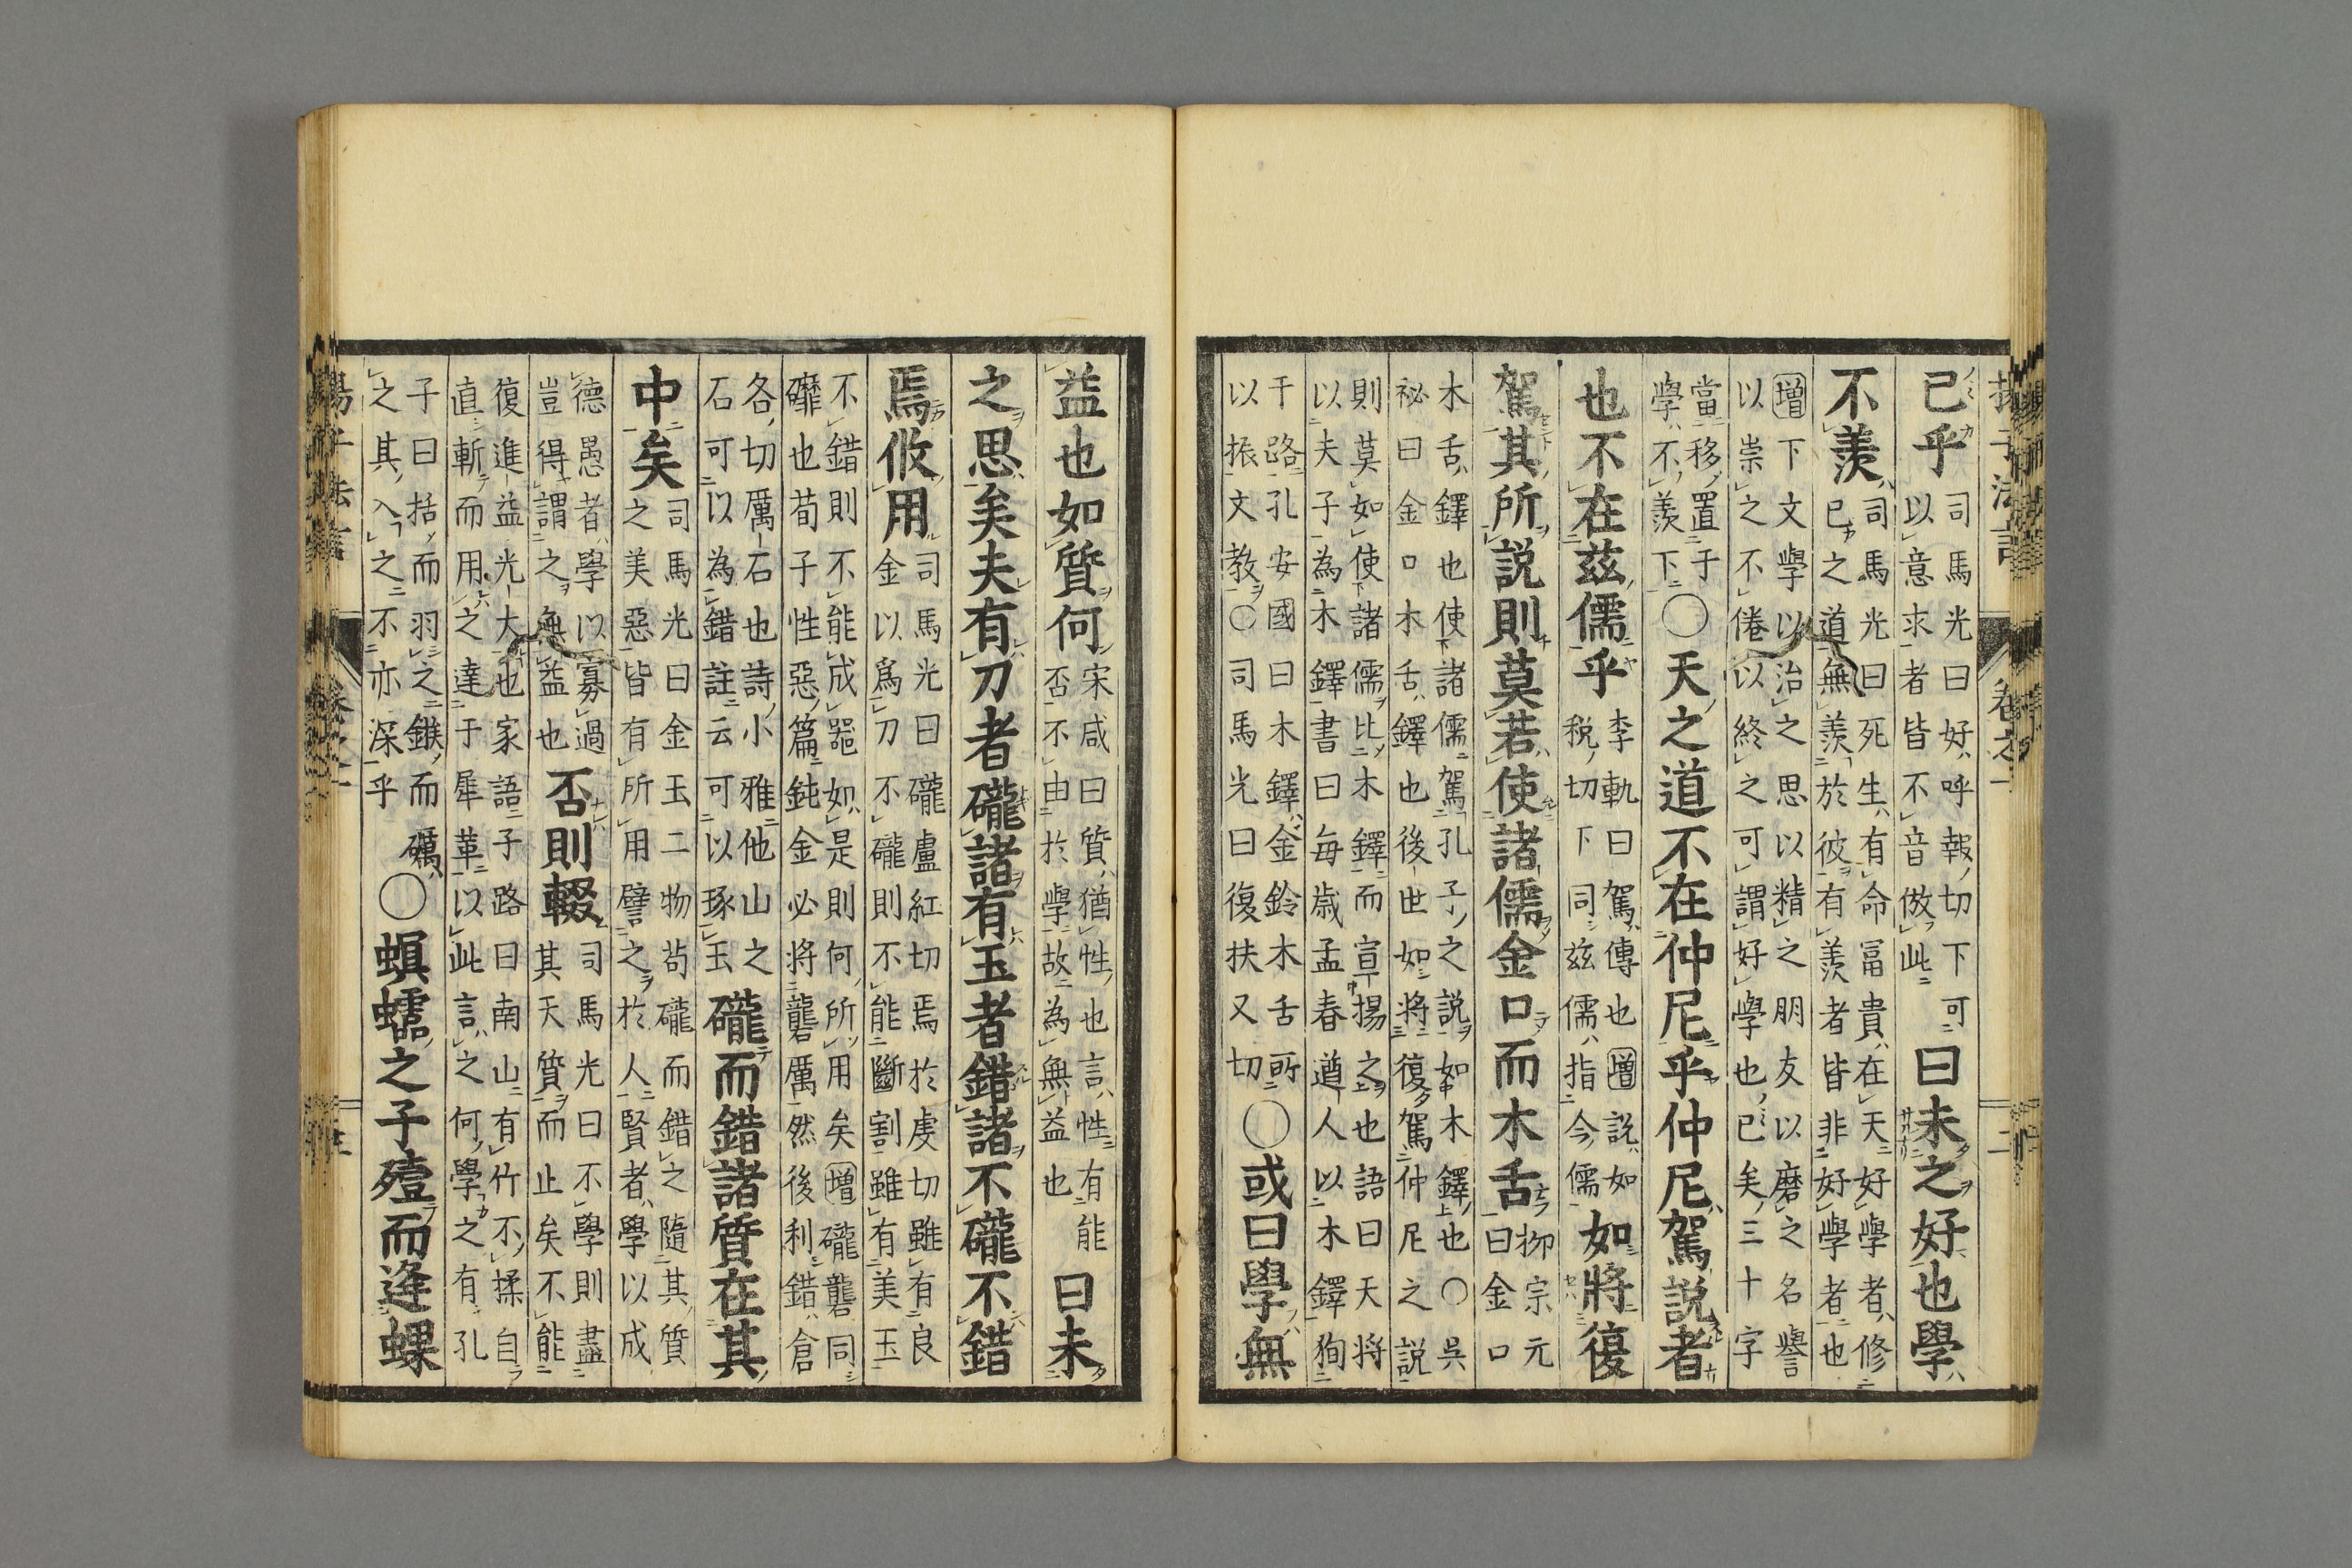 已乎司馬光曰好呼報切下可以意求者皆不音倣此曰未之好也學
不羨司馬光曰死生有命富貴在天好學者修已之道無羨於彼有羨者皆非好學者也
增下文學以治之思以精之朋友以磨之名譽以崇之不倦以終之可謂好學也已矣三十字
當移置于學不羨下○天之道不在仲尼乎仲尼駕說者
也不在茲儒乎李軌曰駕傳也增說如稅切下同茲儒指今儒如將復
駕其所說則莫若使諸儒金口而木舌柳宗元曰金口
木舌鐸也使諸儒駕孔子之說如木鐸也○吳祕曰金口木舌鐸也後世如將復駕仲尼之說
則莫如使諸儒比木鐸而宣揚之也語曰天将以夫子為木鐸書曰每歲孟春遒人以木鐸狥
于路孔安國曰木鐸金鈴木舌所以振文教○司馬光曰復扶又切○或曰學無
益也如質何宋咸曰質猶性也言性有能否不由於學故為無益也曰未
之思矣夫有刀者礲諸有玉者錯諸不礲不錯
焉攸用司馬光曰礲盧紅切焉於虔切雖有良金以爲刀不礲則不能斷割雖有美玉
不錯則不能成器如是則何所用矣增礲礱同礳也荀子性惡篇鈍金必將礱厲然後利錯倉
各切厲石也詩小雅他山之石可以為錯註云可以琢玉礲而錯諸質在其
中矣司馬光曰金玉二物苟礲而錯之隨其質之美惡皆有所用譬之於人賢者學以成
德愚者學以寡過豈得謂之無益也否則輟司馬光曰不學則盡其天質而止矣不能
復進益光大也家語子路曰南山有竹不揉自直斬而用之達于犀革以此言之何學之有孔
子曰括而羽之鏃而礪之其入之不亦深乎○螟蠕之子殪而逢蜾